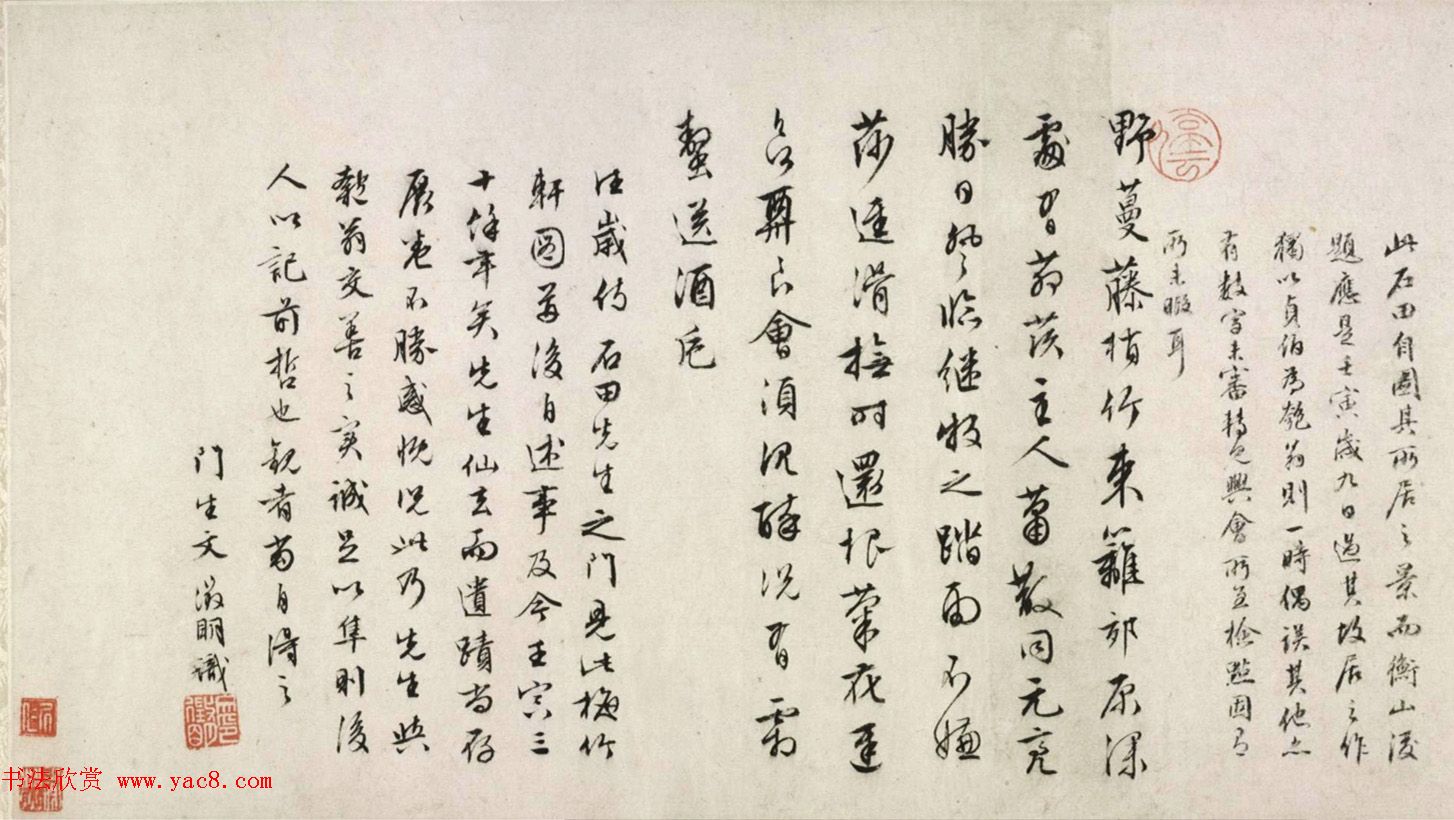 此石田自圖其所居之景而衡山後
題應是壬寅歲九日過其故居之作
獨以貞伯為匏翁則一時偶誤其他亦
有數字未審興會所至檢點固有
所未暇耳
野蔓藤梢竹束籬郊原深
處有茆茨主人蕭散同元亮
勝日登臨继牧之踏雨不嫌
莎逕滑撫時還恨菊花遲
良會須沉醉况有霜
螯送酒巵
往歲侍 石田先生之門見此梅竹
軒圖並後自述事及今壬寅三
十餘年矣先生仙去而遺蹟尚存
展卷不勝感忱况此乃先生與
匏翁交善之實誠足以準則後
人以記前哲也観者當自得之
門生文徵明識
书法欣赏 www.yac8.com